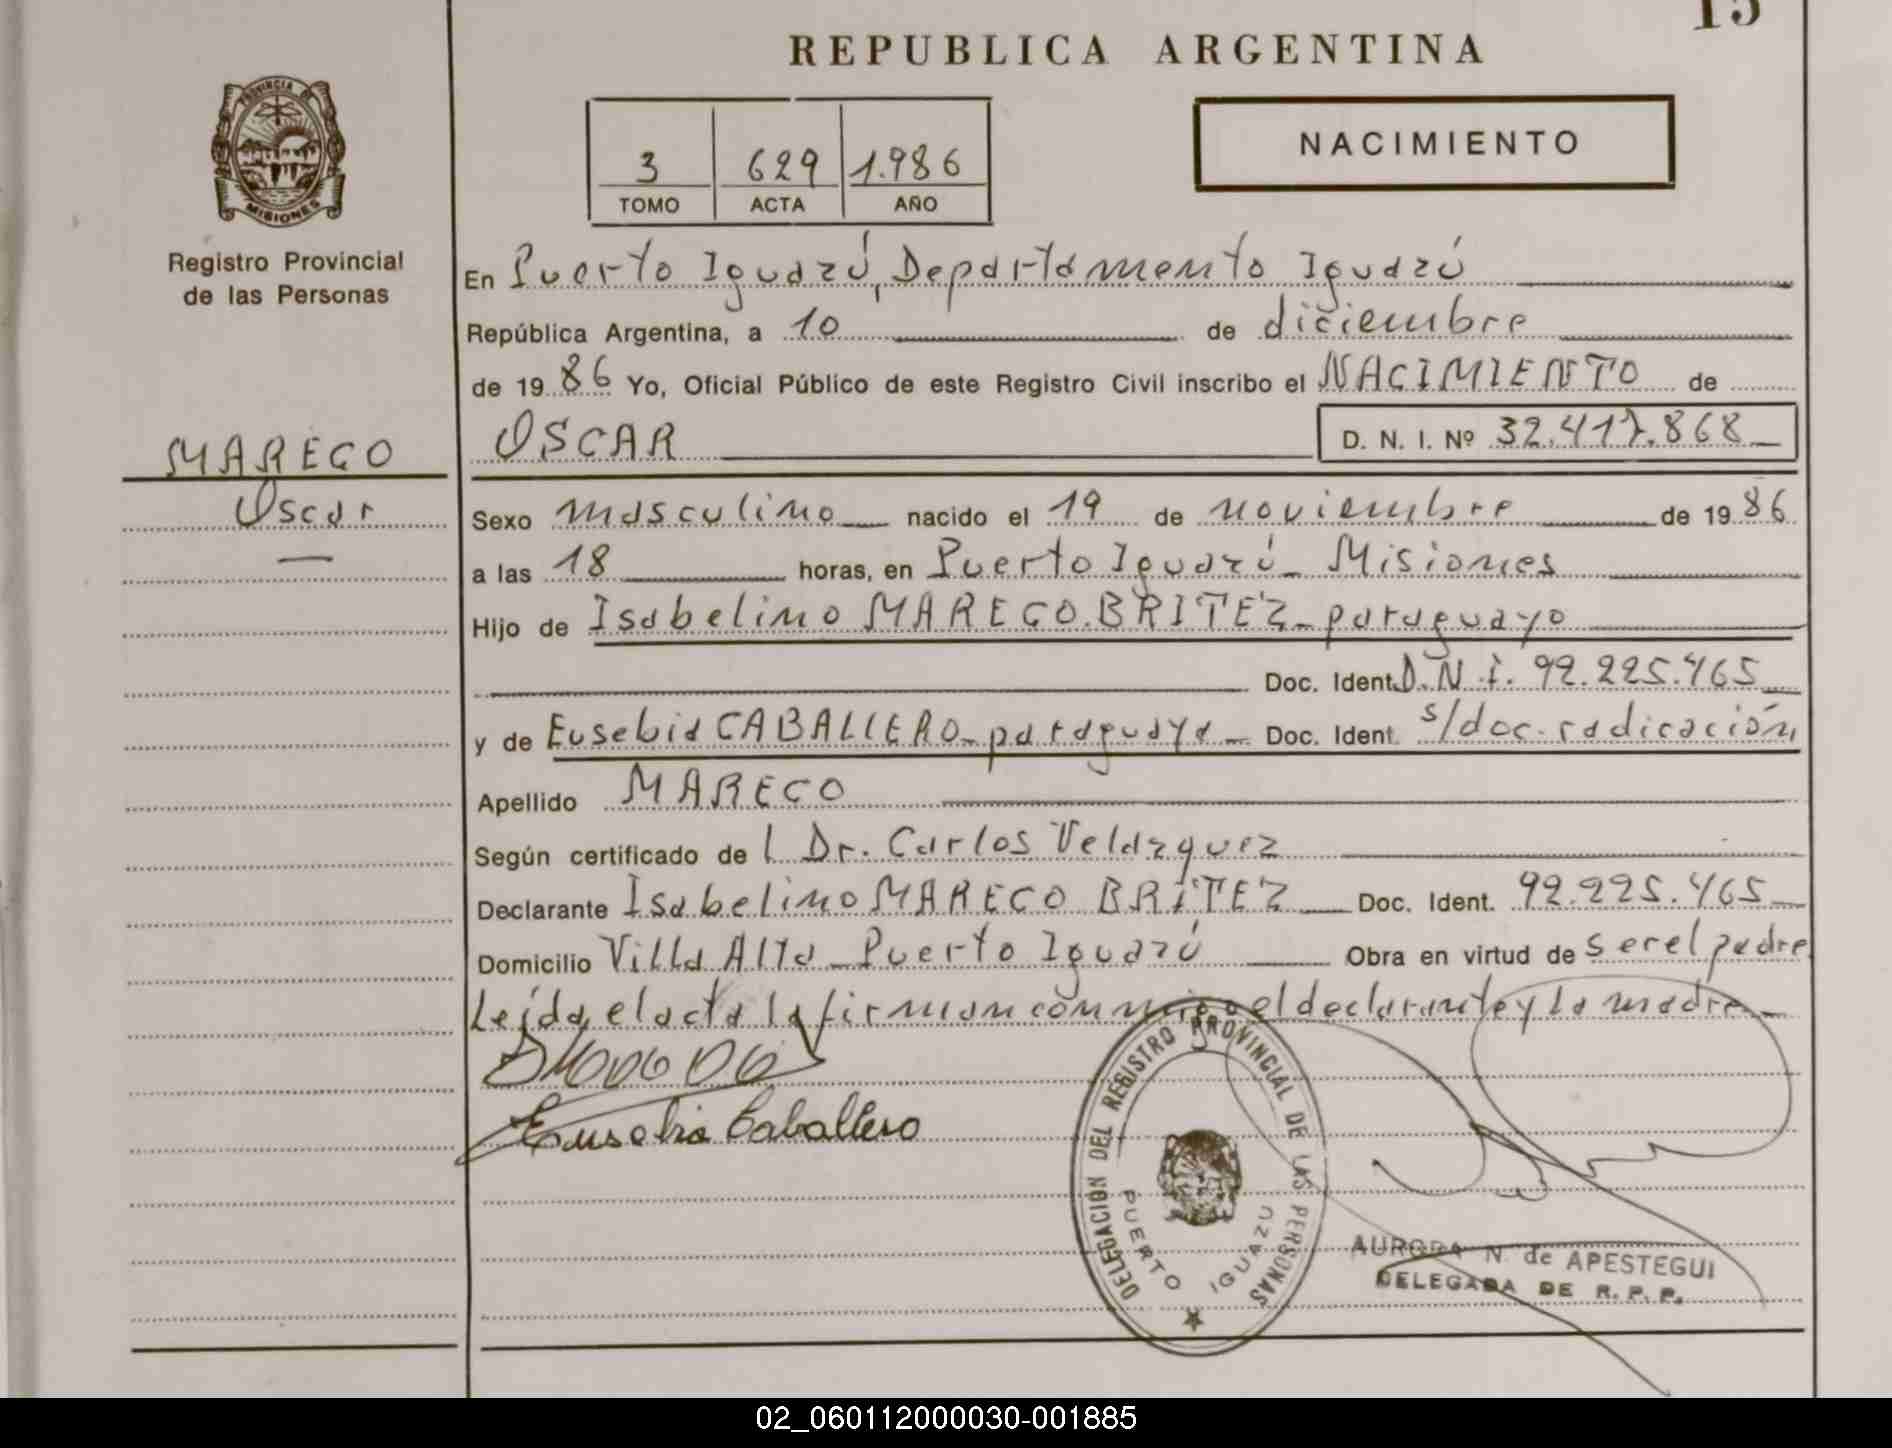 15
REPUBLICA ARGENTINA
PROVINCIA DE
MISIONES
Registro Provincial
de las Personas
3 629 1.986
TOMO ACTA AÑO
NACIMIENTO
En Puerto Iguazú, Departamento Iguazú
República Argentina, a 10 de diciembre
de 1986 Yo, Oficial Público de este Registro Civil inscribo el NACIMIENTO de
OSCAR D. N. I. Nº 32.417.868
MARECO
Oscar
Sexo masculino nacido el 19 de noviembre de 1986
a las 18 horas, en Puerto Iguazú - Misiones
Hijo de Isabelino MARECO BRITEZ - paraguayo
Doc. Ident. D.N.I. 92.225.465
y de Eusebia CABALLERO - paraguaya - Doc. Ident. s/doc. radicación
Apellido MARECO
Según certificado de l Dr. Carlos Velazquez
Declarante Isabelino MARECO BRITEZ Doc. Ident. 92.225.465
Domicilio Villa Alta - Puerto Iguazú Obra en virtud de ser el padre
Leída el acta la firman conmigo el declarante y la madre
Eusebia Caballero
DELEGACION DEL REGISTRO PROVINCIAL DE LAS PERSONAS
PUERTO IGUAZU
AURORA N. de APESTEGUI
DELEGADA DE R. P. P.
02_060112000030-001885